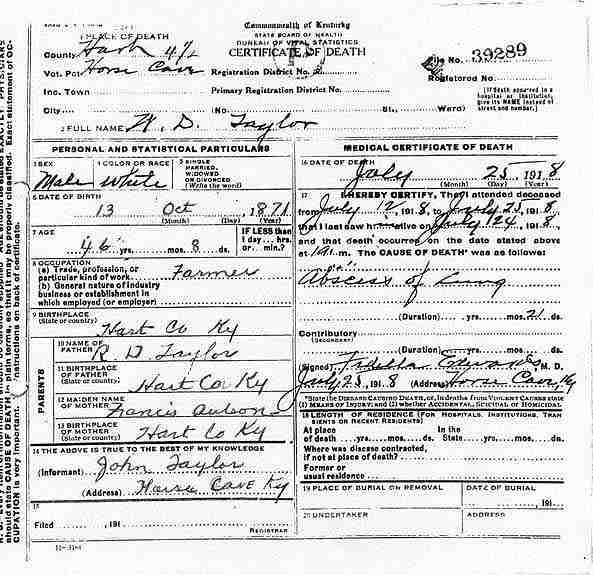 Commonwealth of Kentucky
STATE BOARD OF HEALTH
BUREAU OF VITAL STATISTICS
CERTIFICATE OF DEATH
1 PLACE OF DEATH
County Hart
Vot. Pct Horse Cave
Inc. Town
City
Registration District No.
Primary Registration District No.
(No. St., Ward)
File No. 39289
Registered No.
(If death occurred in a hospital or institution, give its NAME instead of street and number.)
2 FULL NAME W. D. Taylor
PERSONAL AND STATISTICAL PARTICULARS
3 SEX Male
4 COLOR OR RACE White
5 SINGLE MARRIED, WIDOWED OR DIVORCED (Write the word)
6 DATE OF BIRTH
13 Oct 1871
(Month) (Day) (Year)
7 AGE
46 yrs. mos. 8 ds.
IF LESS than 1 day... hrs. or min.?
8 OCCUPATION
(a) Trade, profession, or particular kind of work Farmer
(b) General nature of industry business or establishment in which employed (or employer)
9 BIRTHPLACE
(State or country) Hart Co Ky
PARENTS
10 NAME OF FATHER R. D. Taylor
11 BIRTHPLACE OF FATHER (State or country) Hart Co Ky
12 MAIDEN NAME OF MOTHER Francis
13 BIRTHPLACE OF MOTHER (State or country) Hart Co Ky
14 THE ABOVE IS TRUE TO THE BEST OF MY KNOWLEDGE
(Informant) John Taylor
(Address) Horse Cave Ky
15
Filed , 191
REGISTRAR
MEDICAL CERTIFICATE OF DEATH
16 DATE OF DEATH
July 25 1918
(Month) (Day) (Year)
17 I HEREBY CERTIFY, That I attended deceased
from July 12 1918, to July 25, 1918
that I last saw him alive on July 24, 1918,
and that death occurred on the date stated above
at m. The CAUSE OF DEATH* was as follows:
Abscess of Lung
(Duration) yrs. mos. 21 ds.
Contributory
(SECONDARY)
(Duration) yrs. mos. ds.
(Signed) M. D.
July 25, 1918 (Address) Horse Cave, Ky
*State the DISEASE CAUSING DEATH, or, in deaths from VIOLENT CAUSES state
(1) MEANS OF INJURY; and (2) whether ACCIDENTAL, SUICIDAL or HOMICIDAL.
18 LENGTH OF RESIDENCE (FOR HOSPITALS, INSTITUTIONS, TRANSIENTS OR RECENT RESIDENTS)
At place of death yrs. mos. ds. In the State yrs. mos. ds.
Where was disease contracted, if not at place of death?
Former or usual residence
19 PLACE OF BURIAL OR REMOVAL
DATE OF BURIAL
, 191
20 UNDERTAKER
ADDRESS